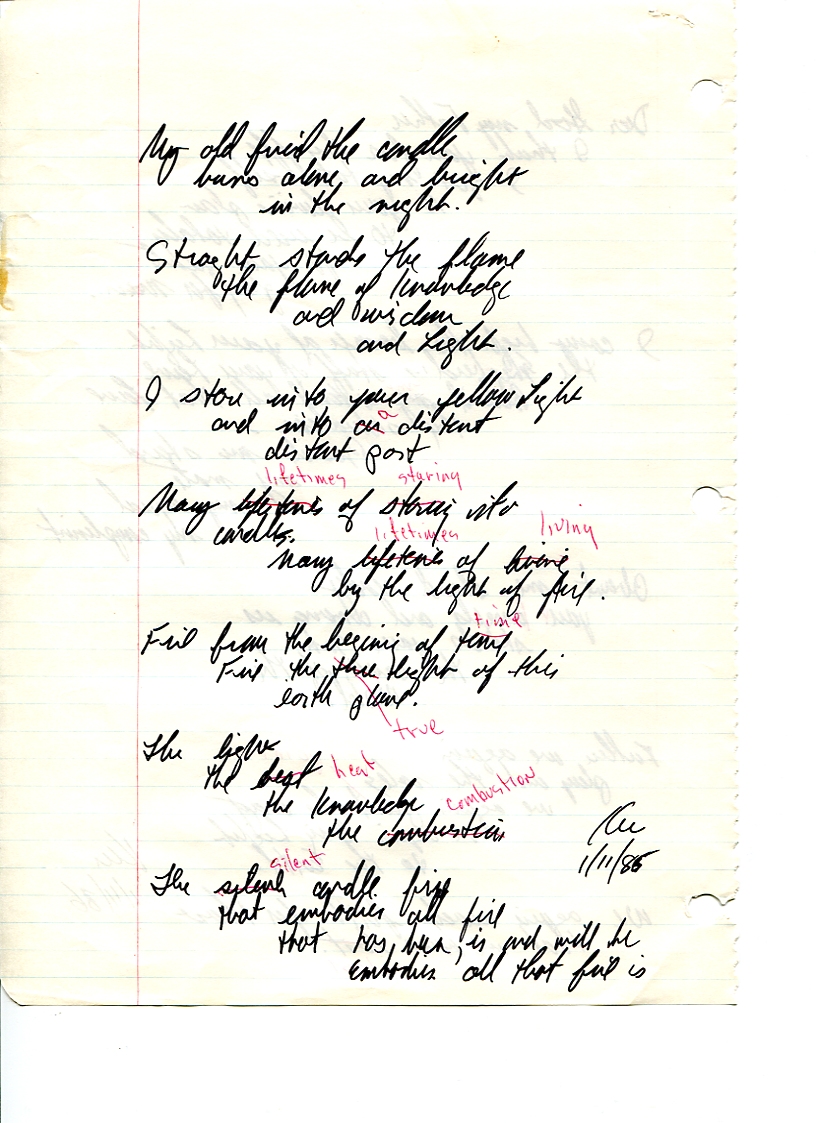 My old frind the candle
burns alone and bright
in the night.
Straght stands the flame
the flame of knowledge
and wisdom
and Light.
I stare into your yellow Light
a
and into an distant
distant past
lifetimes staring
Many lifetimes of staring into
candles.
lifetimes living
Many lifetimes of living
by the light of fire.
time
Fire from the begining of time
Fire the true light of this
earth plane.
true
The light
the heat heat
the knowledge combustion
the combustion
1/11/86
silent
The silent candle fire
that embodies all fire
that has been, is and will be
Embodies all that fire is